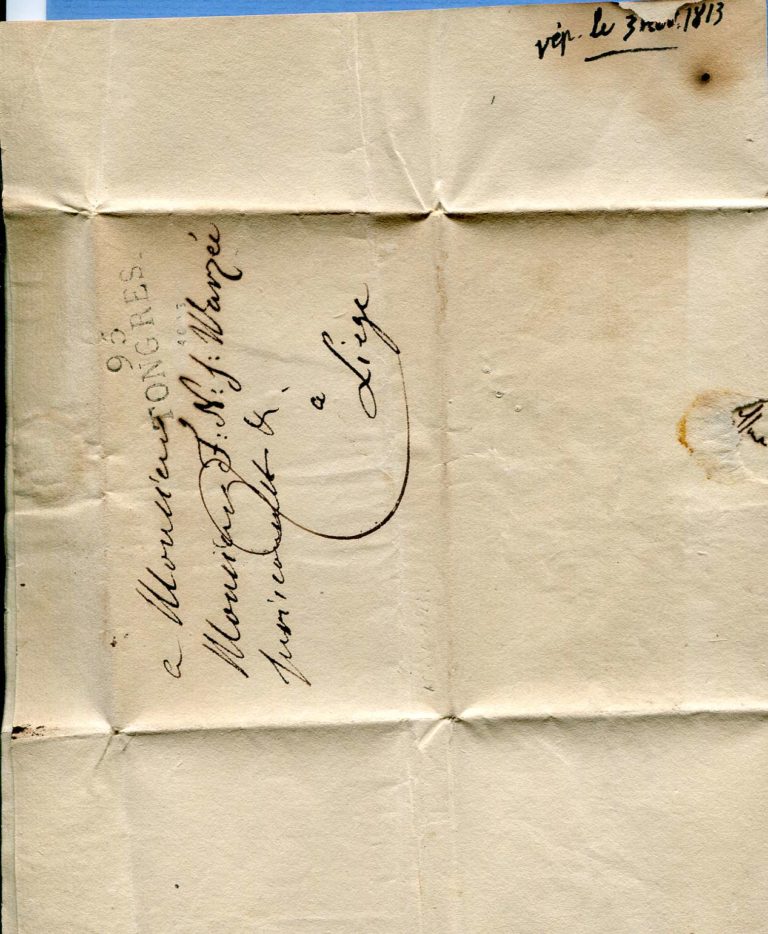 rép. le 3 1813
95
TONGRES.
a Monsieur
Monsieur F: N: J: Warzée
Jurisconsulte &.
a
Liege